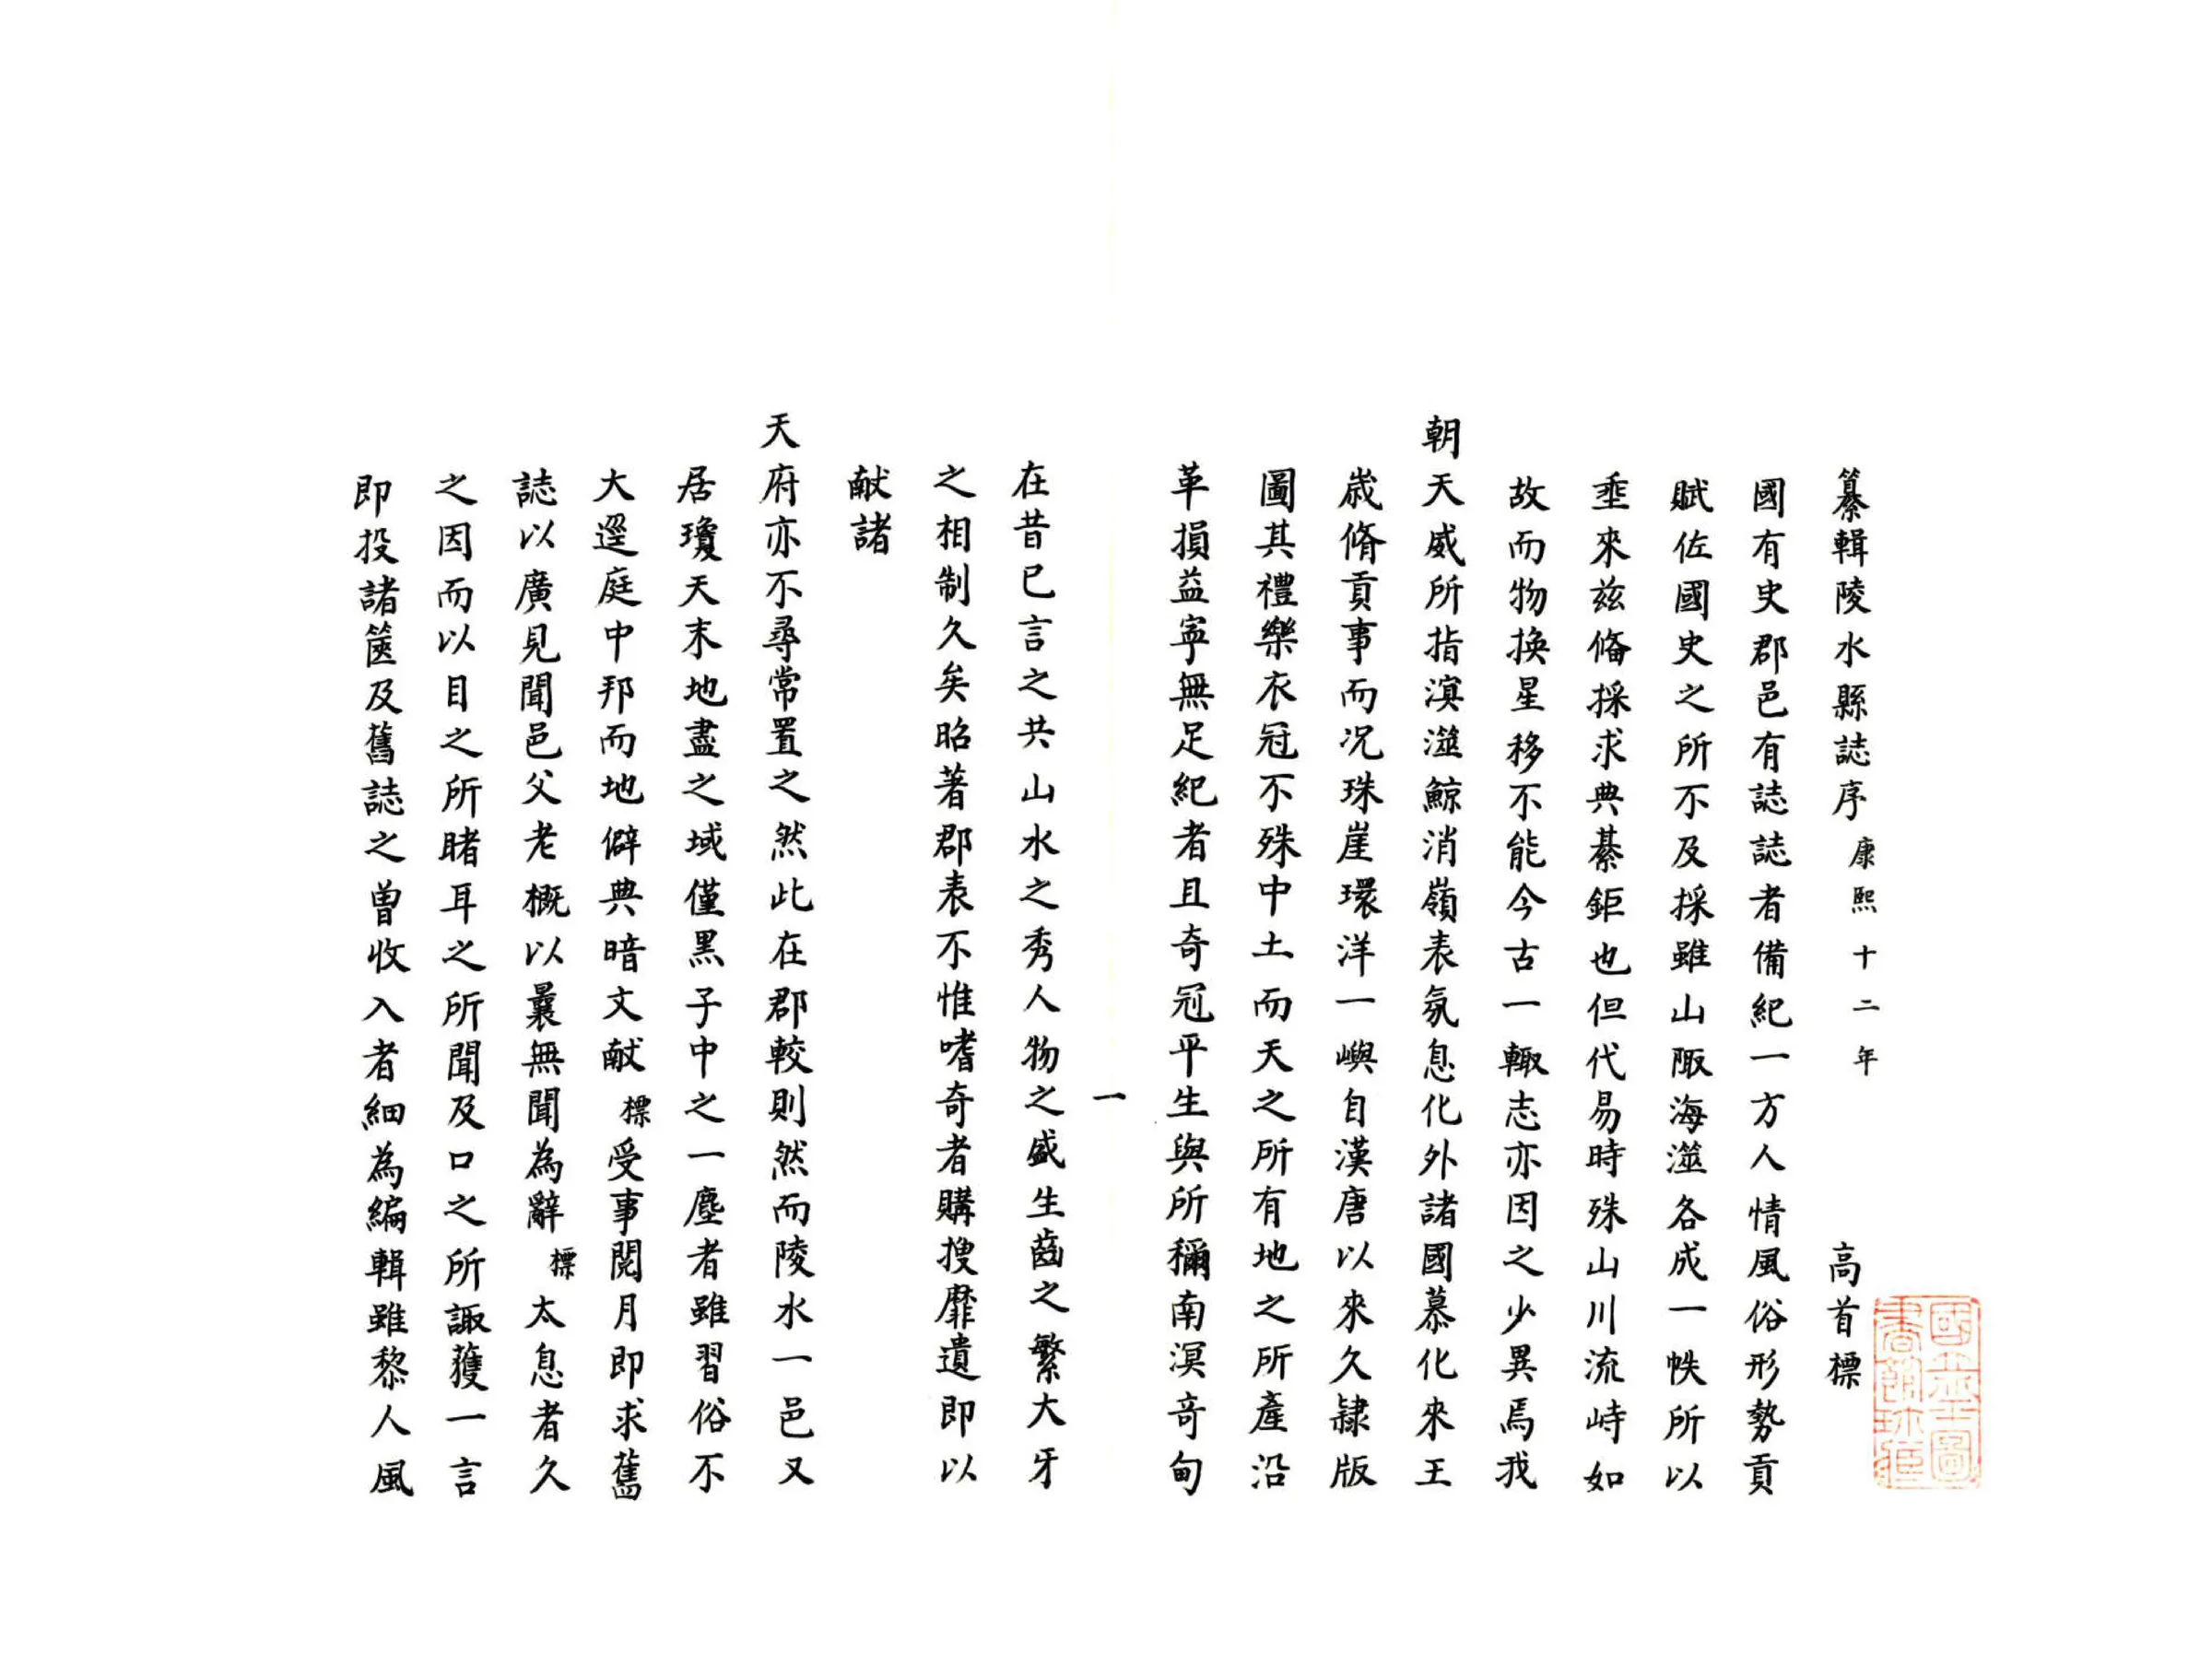 纂輯陵水縣誌序康熙十二年 高首標
國有史郡邑有誌誌者備紀一方人情風俗形勢貢
賦佐國史之所不及採雖山陬海澨各成一帙所以
垂來兹俻採求典綦鉅也但代易時殊山川流峙如
故而物換星移不能今古一輙志亦因之少異焉我
朝天威所指溟澨鯨消嶺表氛息化外諸國慕化來王
歳脩貢事而况珠崖環洋一嶼自漢唐以來久隷版
圖其禮樂衣冠不殊中土而天之所有地之所產沿
革損益寕無足紀者且奇冠平生與所稱南溟竒甸
一
在昔已言之共山水之秀人物之盛生齒之繁大牙
之相制久矣昭著郡表不惟嗜奇者購搜靡遺即以
献諸
天府亦不尋常置之然此在郡較則然而陵水一邑又
居瓊天末地盡之域僅黑子中之一塵者雖習俗不
大逕庭中邦而地僻典暗文献標受事閱月即求舊
誌以廣見聞邑父老概以曩無聞為辭標太息者久
之因而以目之所睹耳之所聞及口之所諏獲一言
即投諸篋及舊誌之曾收入者細為編輯雖黎人風
國立中央圖書館珍藏